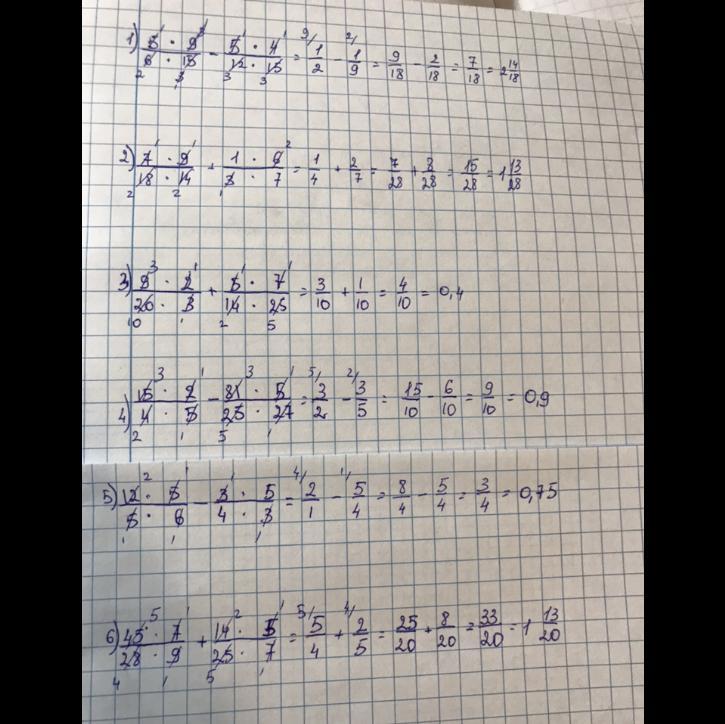 1) (5 · 9)/(6 · 15) - (5 · 4)/(12 · 15) = 1/2 - 1/9 = 9/18 - 2/18 = 7/18 = 2 14/18
2) (7 · 9)/(18 · 14) + (1 · 6)/(3 · 7) = 1/4 + 2/7 = 7/28 + 8/28 = 15/28 = 1 13/28
3) (9 · 2)/(20 · 3) + (5 · 7)/(14 · 25) = 3/10 + 1/10 = 4/10 = 0,4
4) (15 · 2)/(4 · 5) - (81 · 5)/(25 · 27) = 3/2 - 3/5 = 15/10 - 6/10 = 9/10 = 0,9
5) (12 · 5)/(5 · 6) - (3 · 5)/(4 · 3) = 2/1 - 5/4 = 8/4 - 5/4 = 3/4 = 0,75
6) (45 · 7)/(28 · 9) + (14 · 5)/(25 · 7) = 5/4 + 2/5 = 25/20 + 8/20 = 33/20 = 1 13/20